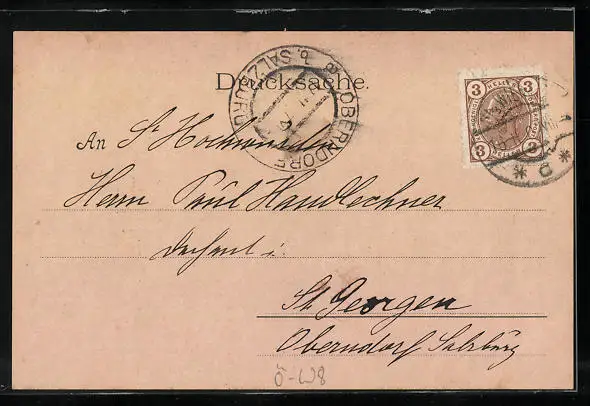 Drucksache.
OBERNDORF b. SALZBURG
3 3
3 3
An Sr Hochwürden
Herrn Paul Handlechner
Dechant i.
St. Georgen
Oberndorf Salzburg
Ö-W8